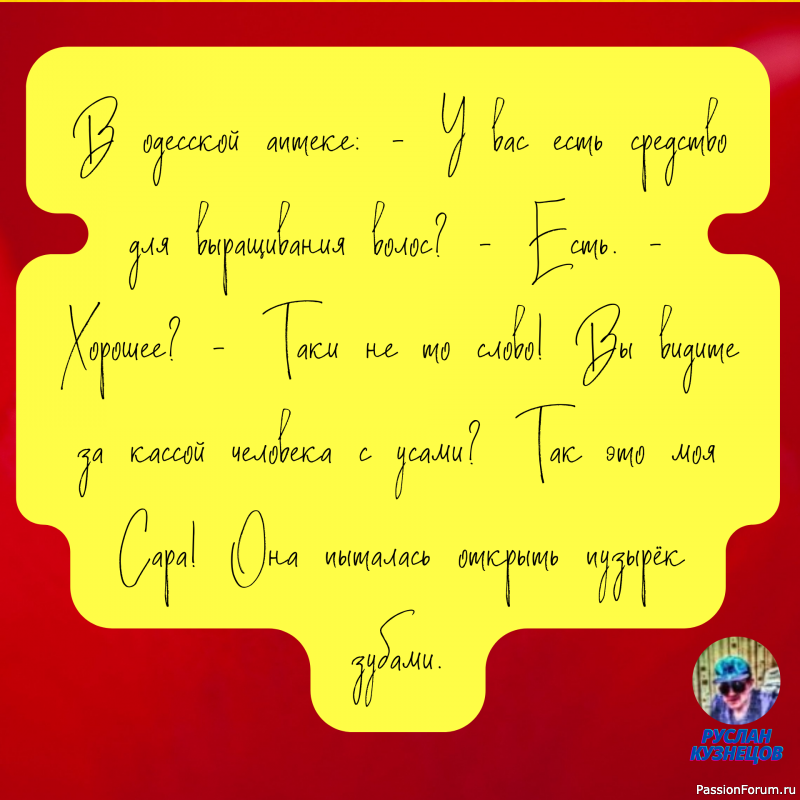 В одесской аптеке: - У вас есть средство
для выращивания волос? - Есть. -
Хорошее? - Таки не то слово! Вы видите
за кассой человека с усами? Так это моя
Сара! Она пыталась открыть пузырёк
зубами.
РУСЛАН
КУЗНЕЦОВ
PassionForum.ru